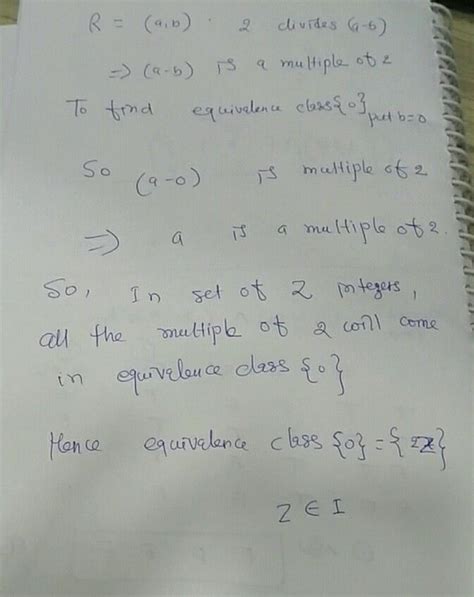 R = (a,b) . 2 divides (a-b)
=> (a-b) is a multiple of 2
To find equivalence class {0} put b=0
So (a-0) is multiple of 2
=> a is a multiple of 2.
So, In set of Z integers,
all the multiple of 2 will come
in equivalence class {0}
Hence equivalence class {0} = {2Z}
Z ∈ I